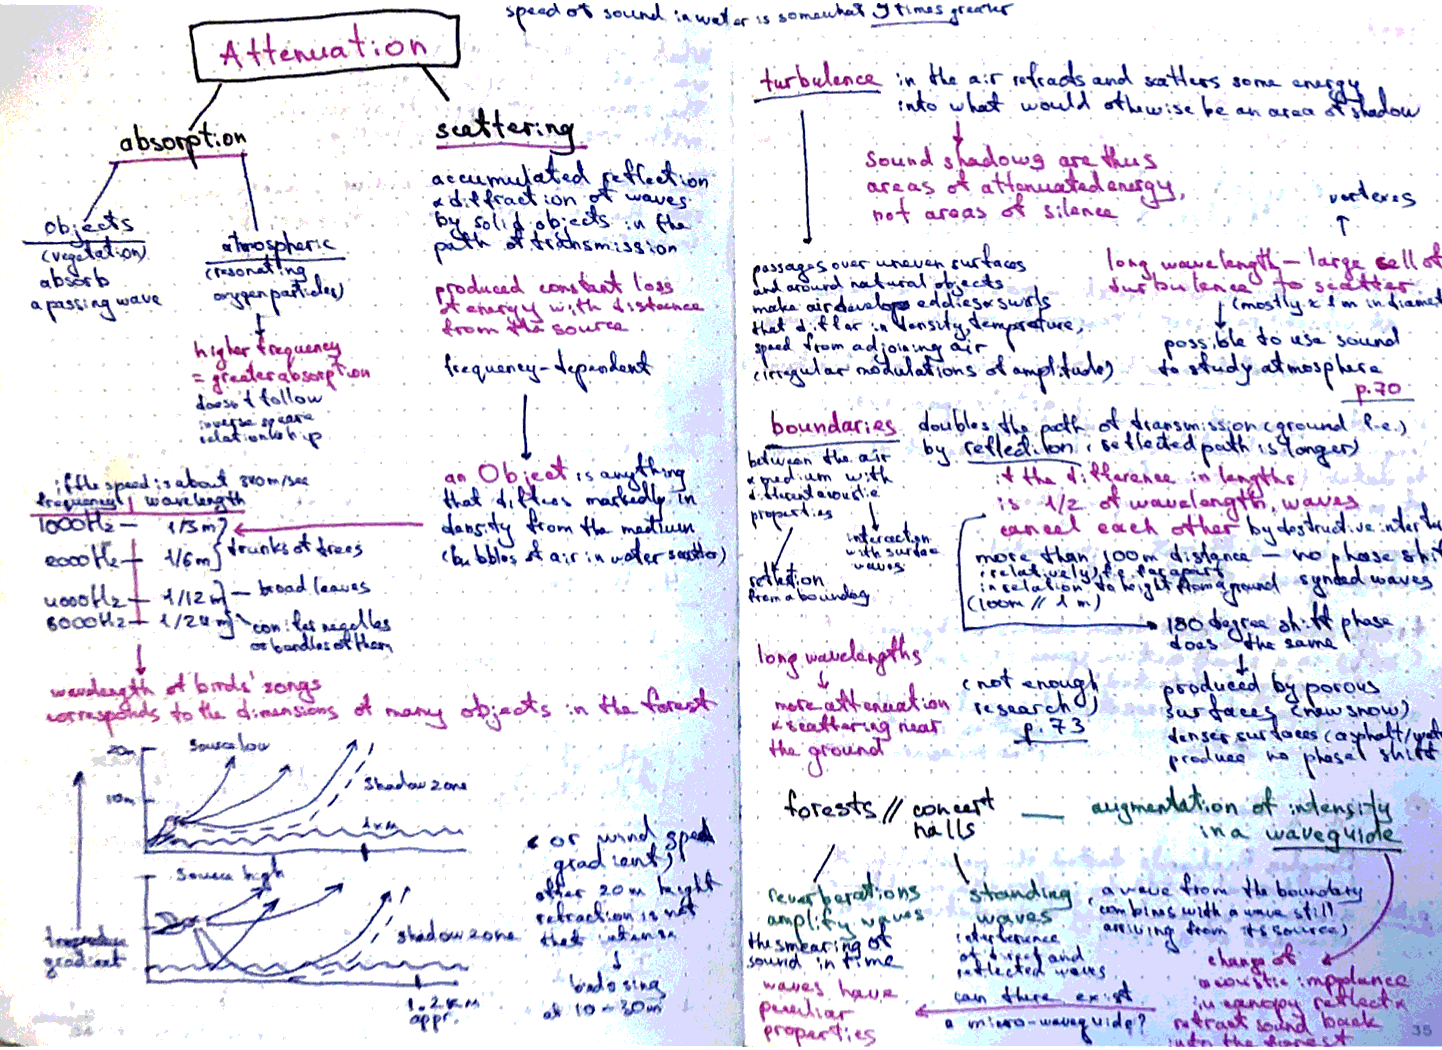 speed of sound in water is somewhat times greater
Attenuation
absorption
scattering
objects
(vegetation)
absorb
a passing wave
atmospheric
(resonating
oxygen particles)
higher frequency
= greater absorption
doesn't follow
inverse square
relationship
accumulated reflection
& diffraction of waves
by solid objects in the
path of transmission
produced constant loss
of energy with distance
from the source
frequency-dependent
an Object is anything
that differs markedly in
density from the medium
(bubbles of air in water scatter)
if the speed is about 340 m/sec
frequency | wavelength
1000Hz — 1/3 m
2000Hz — 1/6 m
trunks of trees
4000Hz — 1/12 m — broad leaves
8000Hz — 1/24 m
conifer needles
or bundles of them
wavelength of birds' songs
corresponds to the dimensions of many objects in the forest
20m
source low
10m
shadow zone
1 km
source high
shadow zone
gradient
1.2 km
appr.
(or wind speed
gradient)
after 20m height
refraction is not
that intense
birds sing
at 10–30m
turbulence in the air refracts and scatters some energy
into what would otherwise be an area of shadow
sound shadows are thus
areas of attenuated energy,
not areas of silence
vortexes
passages over uneven surfaces
and around natural objects
make air develop eddies & swirls
that differ in density, temperature,
speed from adjoining air
(irregular modulations of amplitude)
long wavelength – large cell of
turbulence to scatter
(mostly 1 m in
possible to use sound
to study atmosphere
p. 70
boundaries doubles the path of transmission (ground f.e.)
by reflection (reflected path is longer)
between the air
& medium with
different acoustic
properties
reflection
from a boundary
interaction
with surface
waves
if the difference in lengths
is 1/2 of wavelength, waves
cancel each other by destructive
more than 100m distance — no phase
relatively far apart
in relation to height from ground
synced waves
(100m // 1 m)
180 degree shift phase
does the same
produced by porous
surfaces (new snow)
denser surfaces (asphalt/
produce no phase shift
long wavelengths
more attenuation
& scattering near
the ground
(not enough
research)
p. 73
forests // concert
halls
— augmentation of intensity
in a waveguide
reverberations
amplify waves
the smearing of
sound in time
waves have
peculiar
properties
standing
waves
interference
of direct and
reflected waves
can there exist
a micro-waveguide?
(a wave from the boundary
combines with a wave still
arriving from its source)
change of
acoustic impedance
in canopy reflect &
refract sound back
into the forest
35